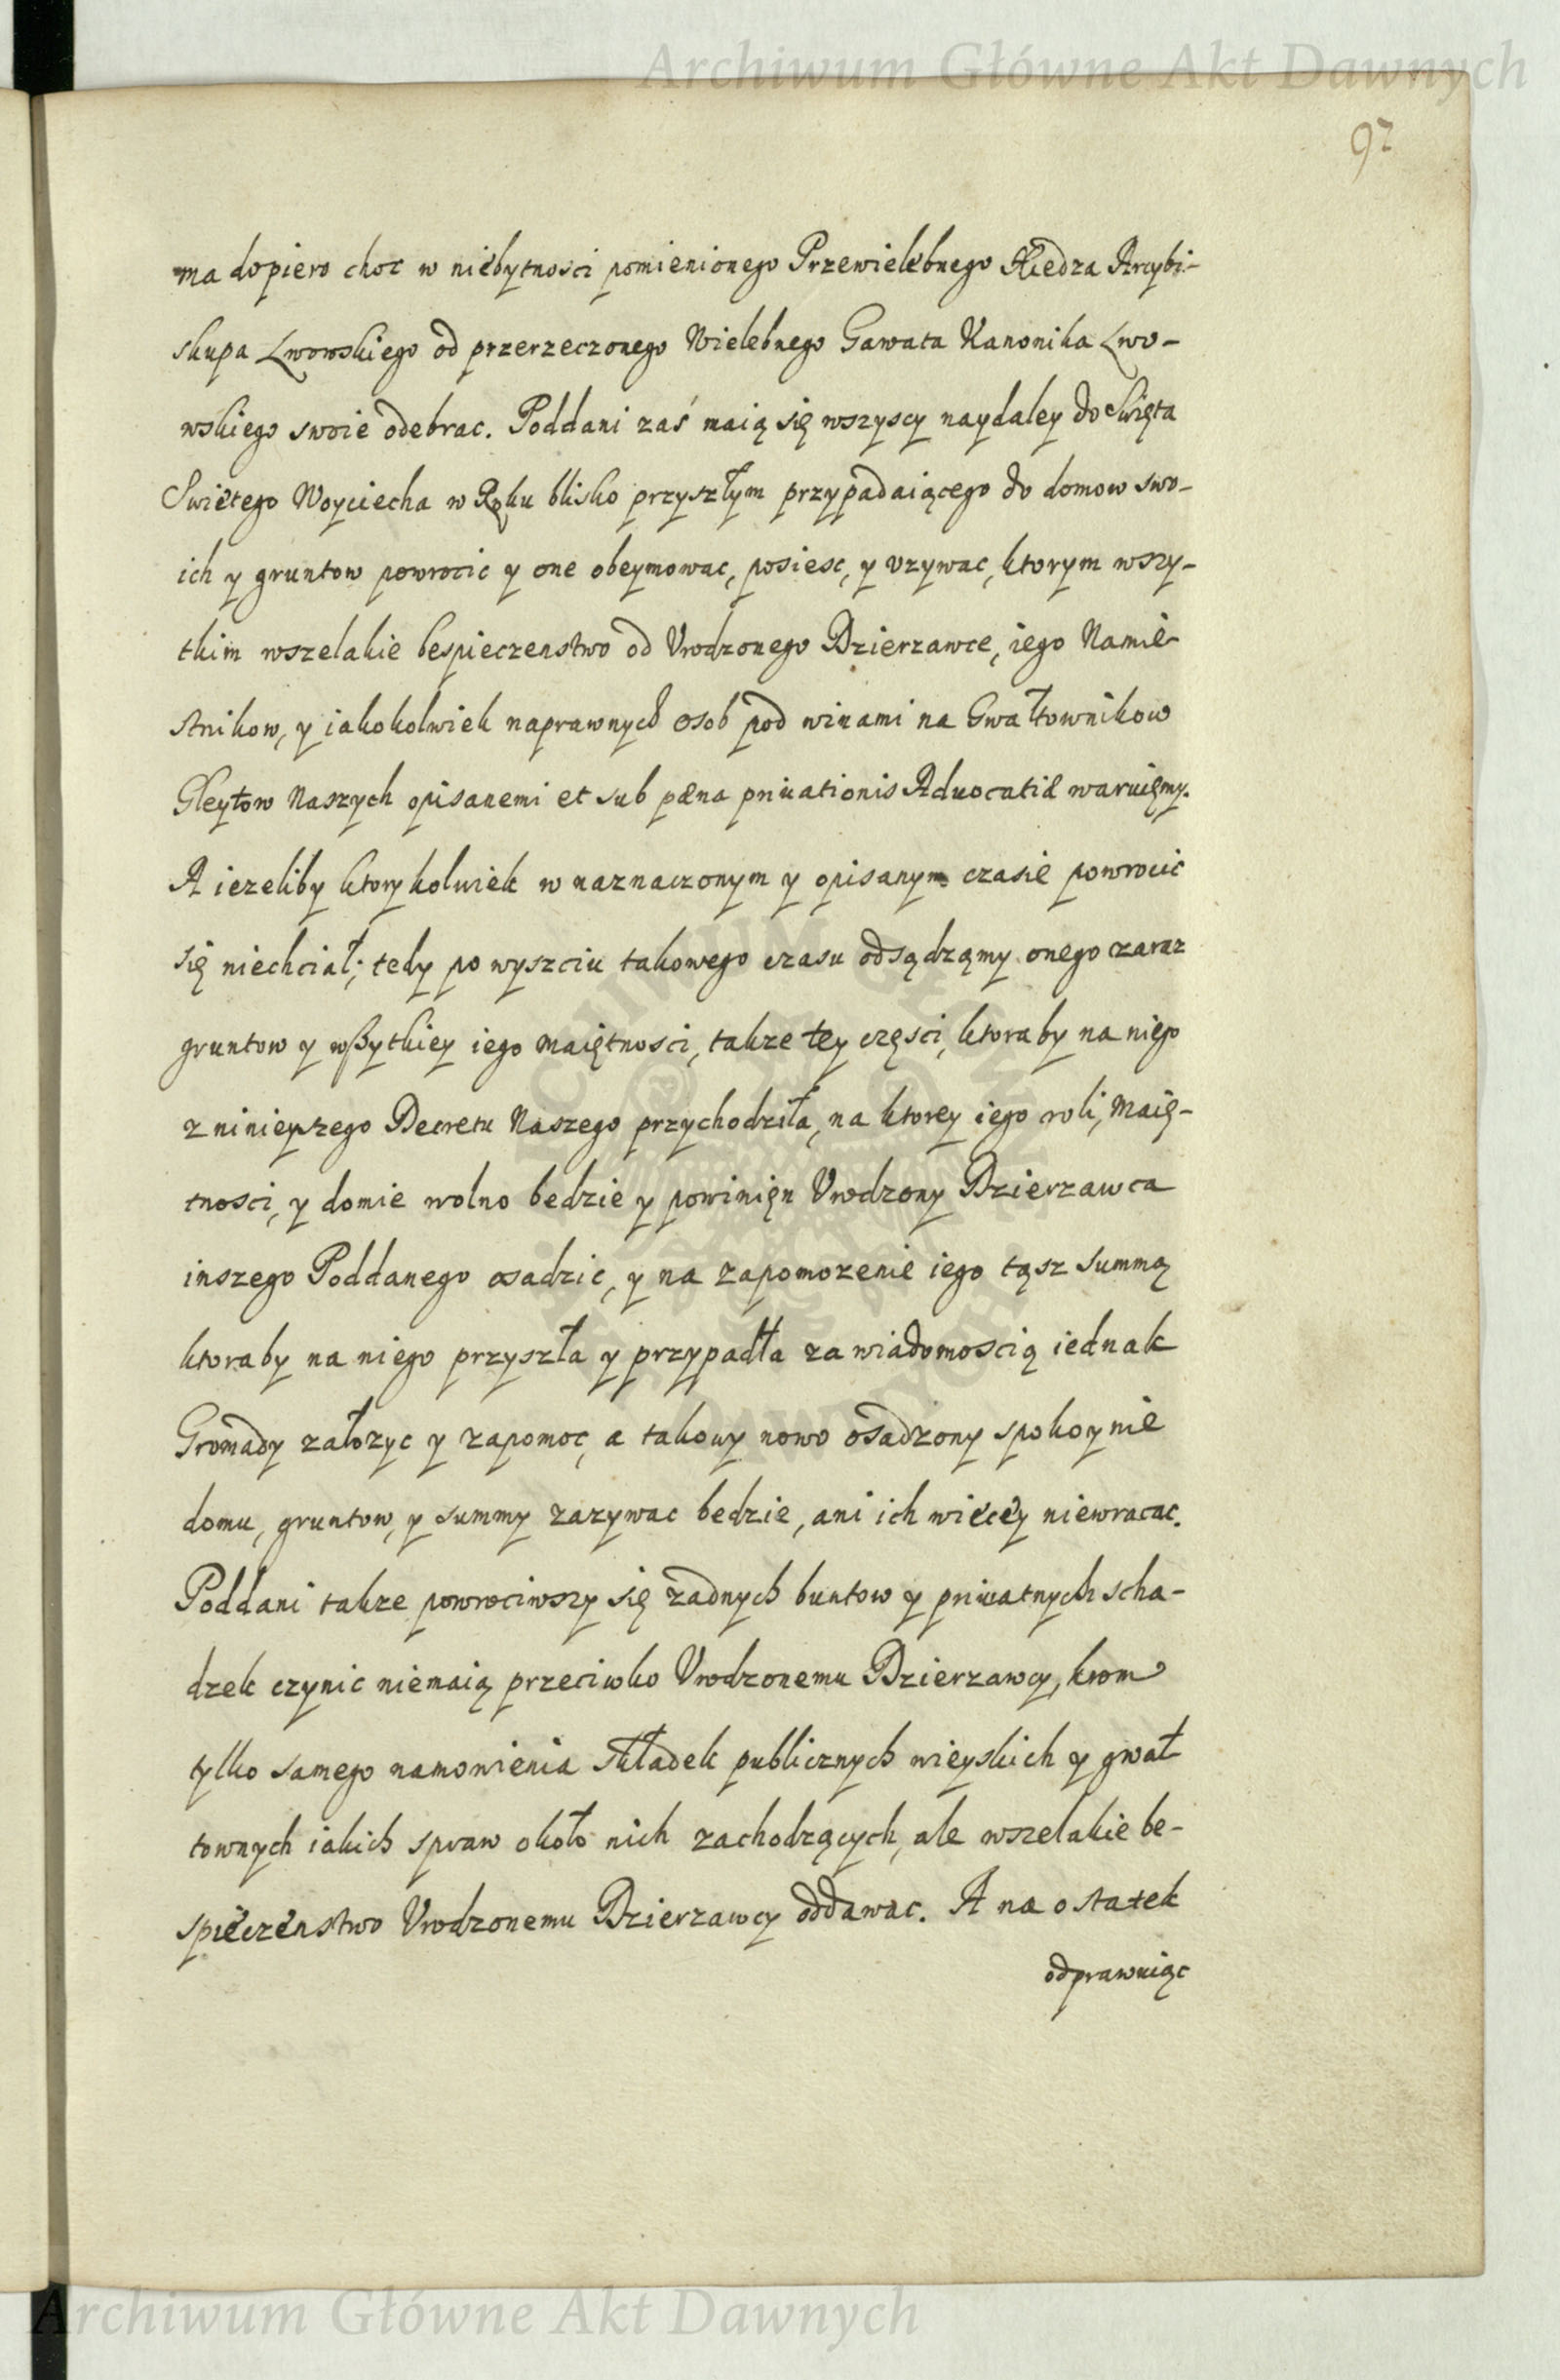 Archiwum Główne Akt Dawnych
97
ma dopiero choc w niebytnosci pomienionego Przewielebnego Xiedza Arcybi-
skupa Lwowskiego od przerzeczonego Wielebnego Gawata Kanonika Lwo-
wskiego swoie odebrac. Poddani zaś maią się wszyscy naydaley do Swięta
Swietego Woyciecha w Roku blisko przyszłym przypadaiącego do domow swo-
ich y gruntow powrocic y one obeymowac, posiesc, y vzywac, ktorym wszy-
tkim wszelakie bespieczenstwo od Vrodzonego Dzierzawce, iego Namie-
stnikow, y iakokolwiek naprawnych osob pod winami na Gwałtownikow
Gleytow Naszych opisanemi et sub pæna priuationis Aduocatiæ waruięmy.
A iezeliby ktorykolwiek w naznaczonym y opisanym czasie powrocic
się niechciał; tedy po wyszciu takowego czasu odsądzamy onego zaraz
gruntow y wßytkiey iego maiętnosci, takze tey częsci, ktoraby na niego
z ninieyszego Decretu Naszego przychodziła, na ktorey iego roli, maię-
tnosci, y domie wolno bedzie y powinięn Vrodzony Dzierzawca
inszego Poddanego osadzic, y na zapomozenie iego tąsz summą
ktoraby na niego przyszła y przypadła za wiadomoscią iednak
Gromady załozyc y zapomoc, a takowy nowo osadzony spokoynie
domu, gruntow, y summy zazywac bedzie, ani ich więcey niewracac.
Poddani takze powrociwszy się zadnych buntow y priuatnych scha-
dzek czynic niemaią przeciwko Vrodzonemu Dzierzawcy, krom
tylko samego namowienia składek publicznych wieyskich y gwał-
townych iakich spraw około nich zachodzących, ale wszelakie be-
spieczenstwo Vrodzonemu Dzierzawcy oddawac. A na ostatek
odprawuiąc
Archiwum Główne Akt Dawnych